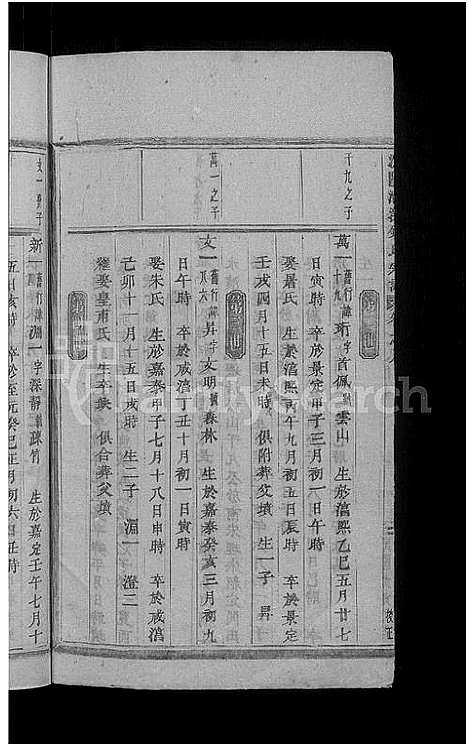 千九之子
萬一 舊行十九 諱珩 字首佩 號雲山 生於淳熙乙巳五月廿七
日寅時 卒於景定甲子三月初一日午時
娶屠氏 生於淳熙丙午九月初五日辰時 卒於景定
壬戌四月十五日未時 俱附葬父墳 生一子 昇
萬一之子
文一 舊行八六 諱昇 字文明 號森林 生於嘉泰癸亥三月初九
日午時 卒於咸淳丁丑十月初一日寅時
娶朱氏 生於嘉泰甲子七月十八日申時 卒於咸淳
己卯十一月十五日戌時 生二子 淵一 澄二
繼娶皇甫氏 生卒缺 俱合葬父墳
文一長子
新一 舊行 諱淵一 字深靜 號踈竹 生於嘉定壬午七月十
五日亥時 卒於至元癸巳正月初六日丑時